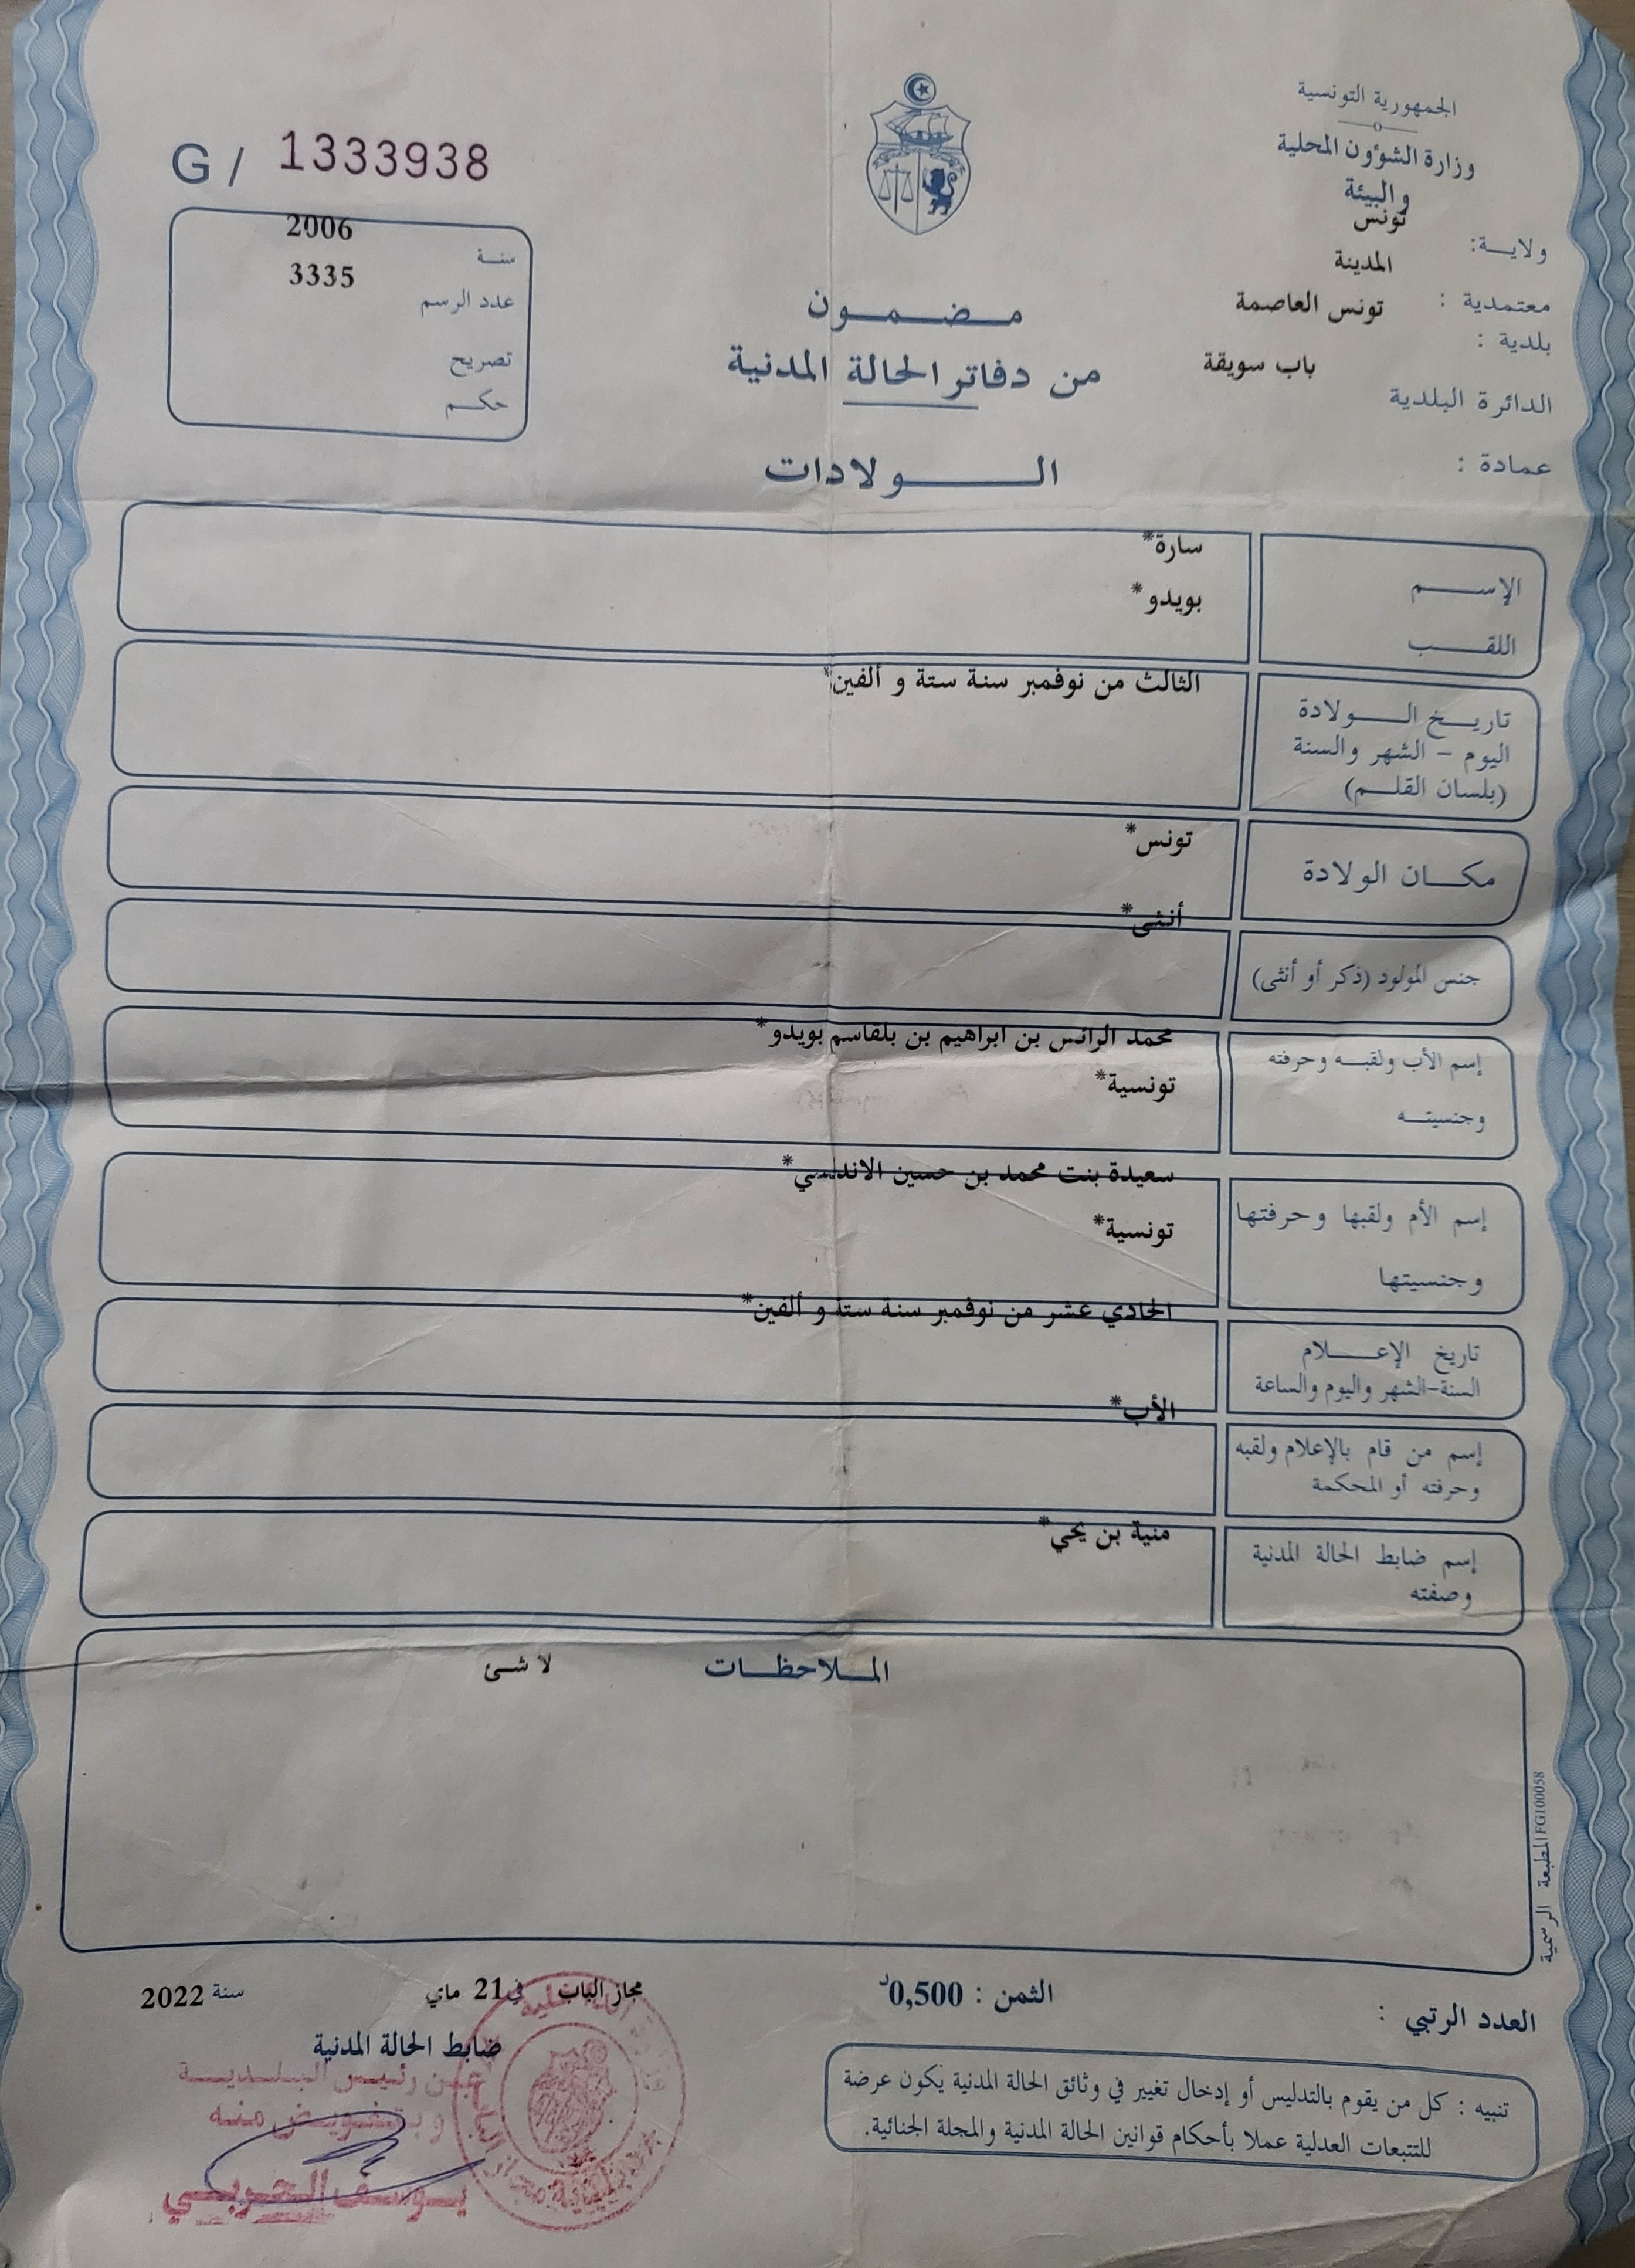 الجمهورية التونسية
وزارة الشؤون المحلية
والبيئة
ولاية: تونس
المدينة
معتمدية : تونس العاصمة
بلدية :
باب سويقة
الدائرة البلدية
عمادة :
G / 1333938
سنة 2006
عدد الرسم 3335
تصريح
حكم
مضمون
من دفاتر الحالة المدنية
الولادات
الإسم سارة*
اللقب بويدو*
تاريخ الولادة الثالث من نوفمبر سنة ستة و ألفين*
اليوم - الشهر والسنة
(بلسان القلم)
مكان الولادة تونس*
جنس المولود (ذكر أو أنثى) أنثى*
إسم الأب ولقبه وحرفته محمد الرائس بن ابراهيم بن بلقاسم بويدو*
وجنسيته تونسية*
إسم الأم ولقبها وحرفتها سعيدة بنت محمد بن حسين الاندلسي*
وجنسيتها تونسية*
تاريخ الإعلام الحادي عشر من نوفمبر سنة ستة و ألفين*
السنة-الشهر واليوم والساعة
إسم من قام بالإعلام ولقبه الأب*
وحرفته أو المحكمة
إسم ضابط الحالة المدنية منية بن يحي*
وصفته
الملاحظات لا شئ
المطبعة الرسمية FG100058
العدد الرتبي :
الثمن : 0,500د
مجاز الباب في 21 ماي سنة 2022
ضابط الحالة المدنية
عن رئيس البلدية
وبتفويض منه
يوسف الحربي
تنبيه : كل من يقوم بالتدليس أو إدخال تغيير في وثائق الحالة المدنية يكون عرضة
للتتبعات العدلية عملا بأحكام قوانين الحالة المدنية والمجلة الجنائية.